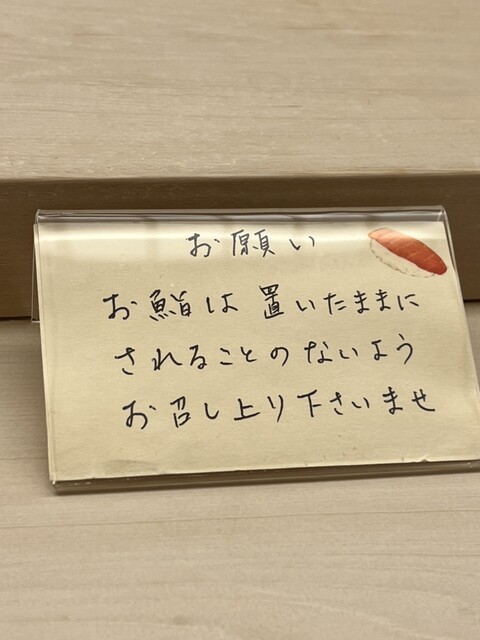 お願い
お鮨は置いたままに
されることのないよう
お召し上り下さいませ